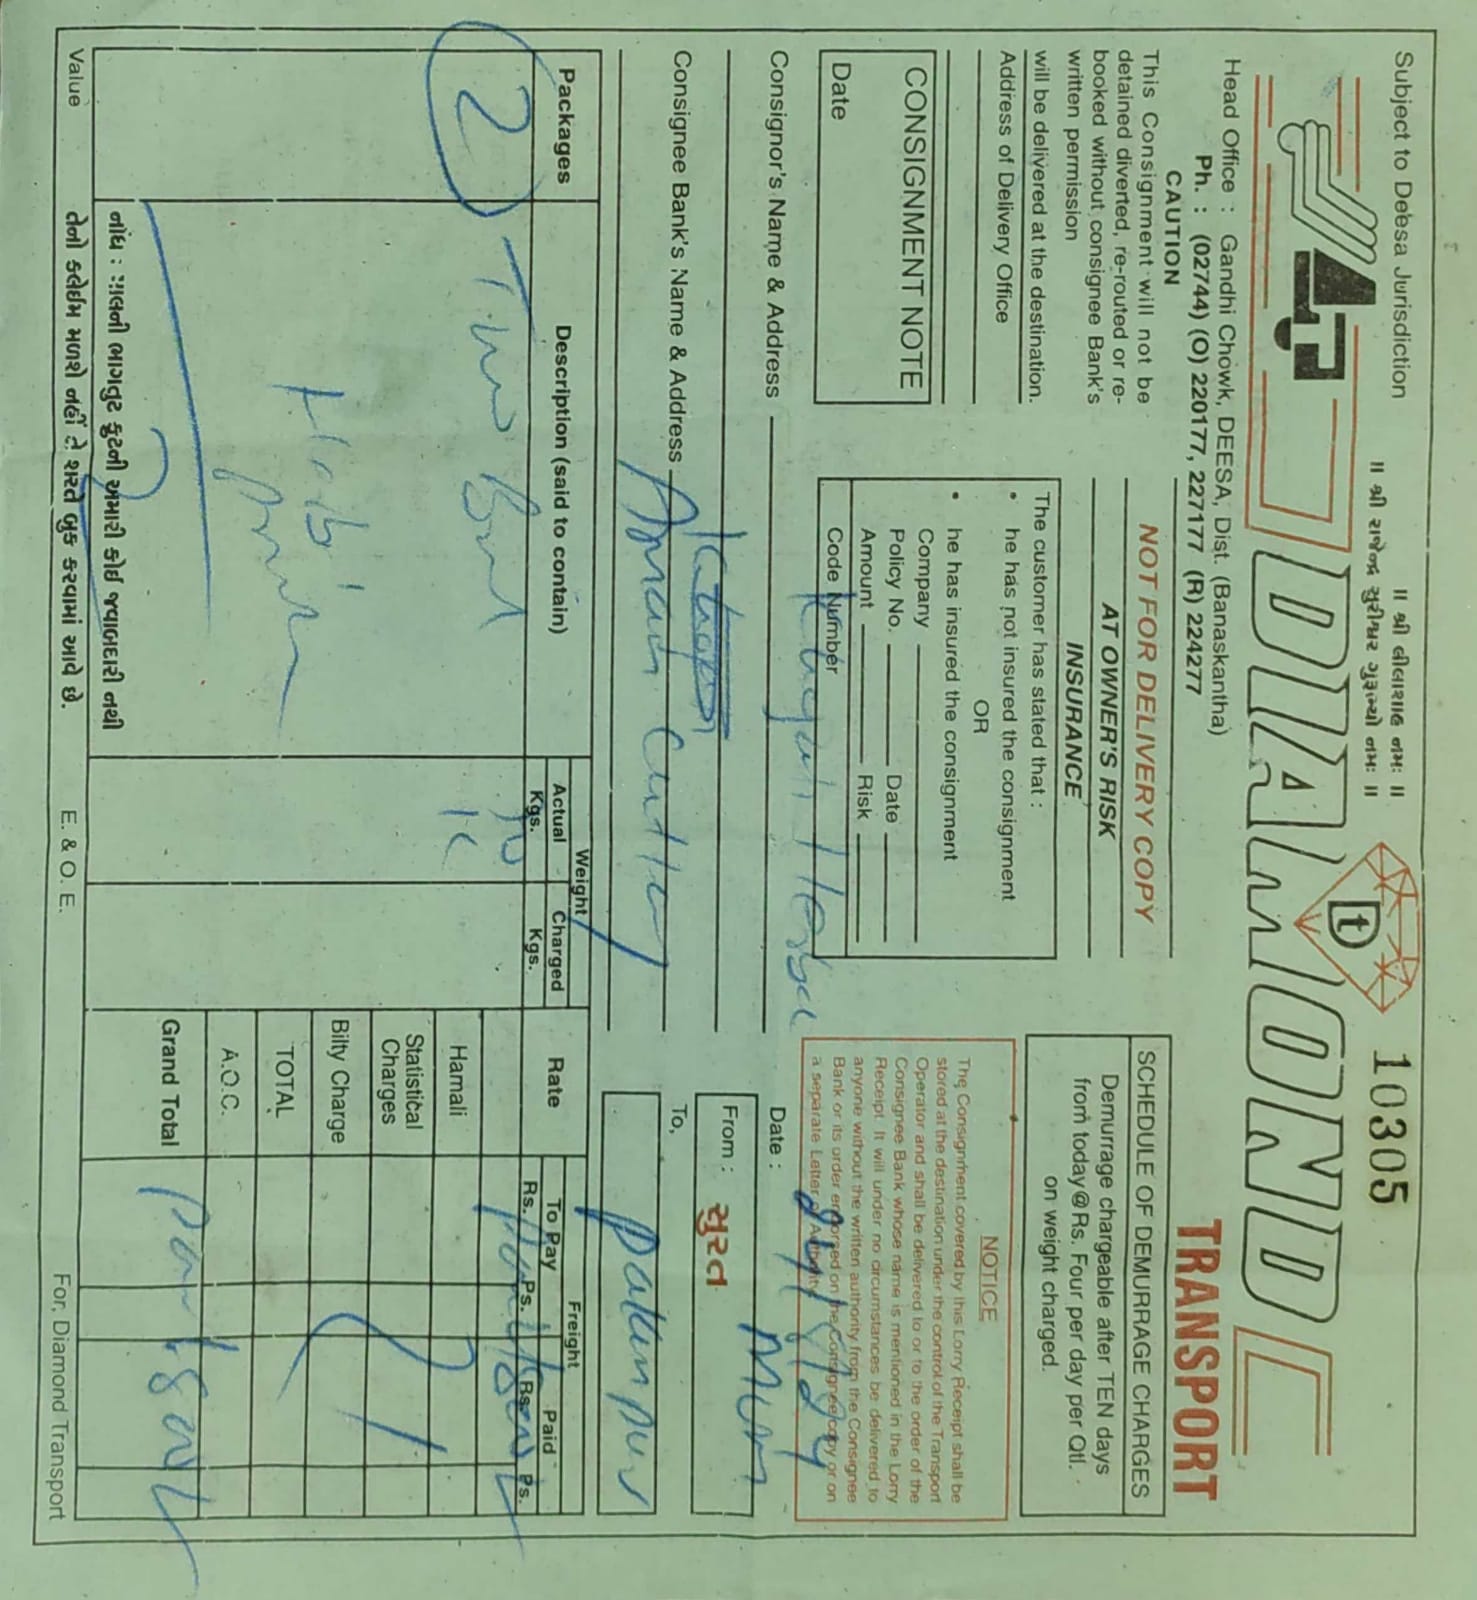 Subject to Deesa Jurisdiction
॥ શ્રી લીલાશાહ નમઃ ॥
॥ શ્રી રાજેન્દ્ર સુરીશ્વર ગુરૂભ્યો નમઃ ॥
10305
DIAMOND
t
TRANSPORT
Head Office : Gandhi Chowk, DEESA, Dist. (Banaskantha)
Ph. : (02744) (O) 220177, 227177 (R) 224277
CAUTION
This Consignment will not be
detained diverted, re-routed or re-
booked without consignee Bank's
written permission
will be delivered at the destination.
Address of Delivery Office
NOT FOR DELIVERY COPY
AT OWNER'S RISK
INSURANCE
The customer has stated that :
• he has not insured the consignment
OR
• he has insured the consignment
Company
Policy No. Date
Amount Risk
Code Number
SCHEDULE OF DEMURRAGE CHARGES
Demurrage chargeable after TEN days
from today@Rs. Four per day per Qtl.
on weight charged.
NOTICE
The Consignment covered by this Lorry Receipt shall be
stored at the destination under the control of the Transport
Operator and shall be delivered to or to the order of the
Consignee Bank whose name is mentioned in the Lorry
Receipt. It will under no circumstances be delivered to
anyone without the written authority from the Consignee
Bank or its order endorsed on the Consignee copy or on
a separate Letter of Authority
CONSIGNMENT NOTE
Date
Consignor's Name & Address
Date :
From : સુરત Mum
Consignee Bank's Name & Address
To,
Packages
Description (said to contain)
Weight
Actual Kgs.
Charged Kgs.
Rate
Freight
To Pay
Rs. Ps.
Paid
Rs. Ps.
2
Hamali
Statistical Charges
Bilty Charge
TOTAL
A.O.C.
Grand Total
નોંધ : માલની ભાગતુટ ફુટની અમારી કોઈ જવાબદારી નથી
તેનો કલેઈમ મળશે નહીં તે શરતે બુક કરવામાં આવે છે.
Value
E. & O. E.
For, Diamond Transport